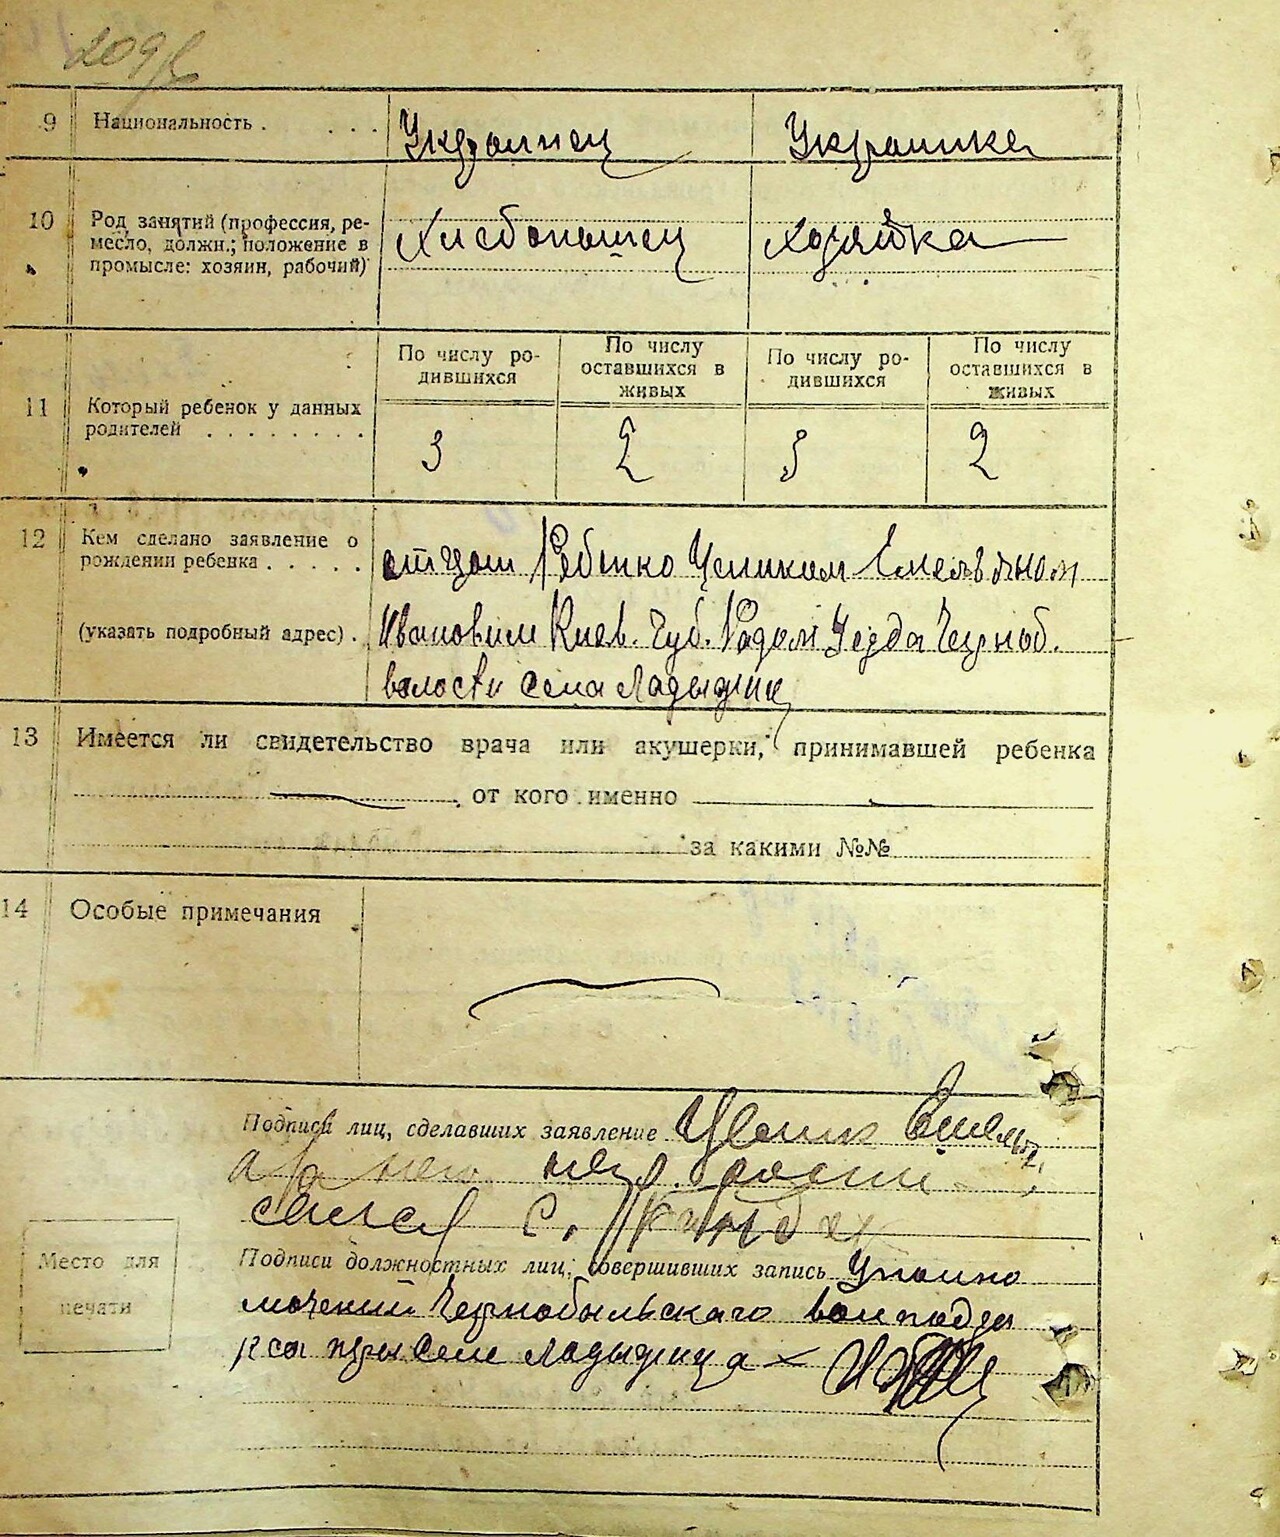 209
9 Национальность . . . . Украинец Украинка
10 Род занятий (профессия, ре-
месло, должн.; положение в
промысле: хозяин, рабочий)
Хлебопашец хозяйка
По числу ро-
дившихся
По числу
оставшихся в
живых
По числу ро-
дившихся
По числу
оставшихся в
живых
11 Который ребенок у данных
родителей . . . . . . . .
3 2 3 2
12 Кем сделано заявление о
рождении ребенка . . . . .
отцом Ребенка Емельяном
(указать подробный адрес) . Ивановичем Киев. Губ. Радом Уезда Черноб.
волости села Ладыжич
13 Имеется ли свидетельство врача или акушерки, принимавшей ребенка
от кого именно
за какими №№
14 Особые примечания
Подписи лиц, сделавших заявление
а за него
с.
Место для
печати
Подписи должностных лиц, совершивших запись Уполно
мочений Чернобыльскаго волподза
кса при селе Ладыжичах